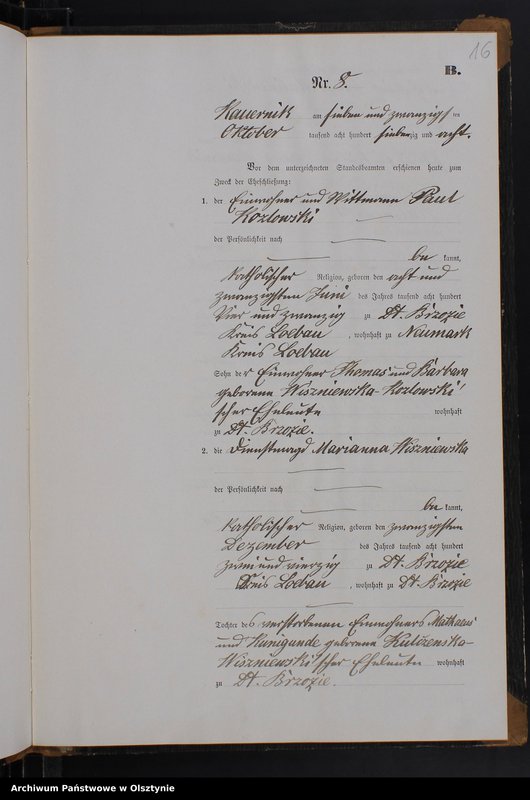 16
B.
Nr. 8.
Kauernik am sieben und zwanzigsten
Oktober tausend acht hundert siebenzig und acht.
Vor dem unterzeichneten Standesbeamten erschienen heute zum
Zweck der Eheschließung:
1. der Einwohner und Wittmann Paul
Kozlowski
der Persönlichkeit nach
bekannt,
katholischer Religion, geboren den acht und
zwanzigsten Juni des Jahres tausend acht hundert
Vier und zwanzig zu Dt. Brzozie
Kreis Loebau, wohnhaft zu Neumark
Kreis Loebau
Sohn der Einwohner Thomas und Barbara
geborene Wiszniewska-Kozlowski'
scher Eheleute wohnhaft
zu Dt. Brzozie.
2. die Dienstmagd Marianna Wiszniewska
der Persönlichkeit nach
bekannt,
katholischer Religion, geboren den zwanzigsten
Dezember des Jahres tausend acht hundert
zwei und vierzig zu Dt. Brzozie
Kreis Loebau, wohnhaft zu Dt. Brzozie
Tochter des verstorbenen Einwohners Mathaeus
und Kunigunde geborene
Wiszniewski'scher Eheleute wohnhaft
zu Dt. Brzozie.
Archiwum Państwowe w Olsztynie